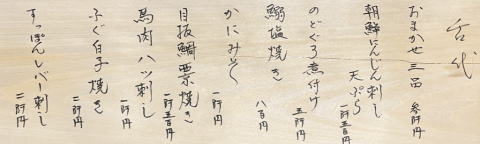 古代
おまかせ三品 参阡円
朝鮮にんじん刺し
天ぷら 一阡五百円
のどぐろ煮付け 五阡円
鰯塩焼き 八百円
かにみそ 一阡円
目抜鯛粟焼き 一阡五百円
馬肉ハツ刺し 一阡円
ふぐ白子焼き 二阡円
すっぽんレバー刺し 二阡円